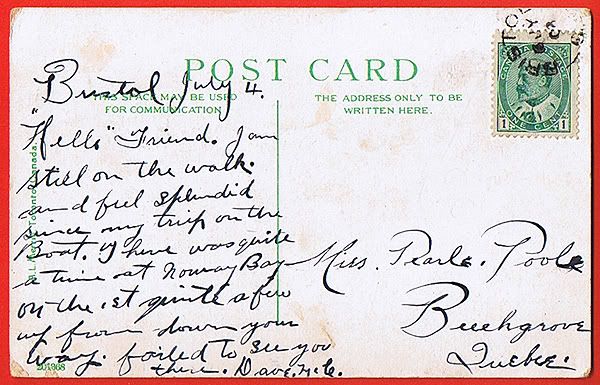 POST CARD
THIS SPACE MAY BE USED
FOR COMMUNICATION
THE ADDRESS ONLY TO BE
WRITTEN HERE.
Bristol July 4.
"Hello" Friend. I am
still on the walk.
and feel splendid
since my trip on the
Boat. There was quite
a time at Norway Bay
on the 1st quite a few
up from down your
way. failed to see you
there. Dave
Miss. Pearle. Poole
Beechgrove
Quebec.
CANADA POSTAGE
1 ONE CENT 1
BRISTOL
Toronto, Canada.
201968